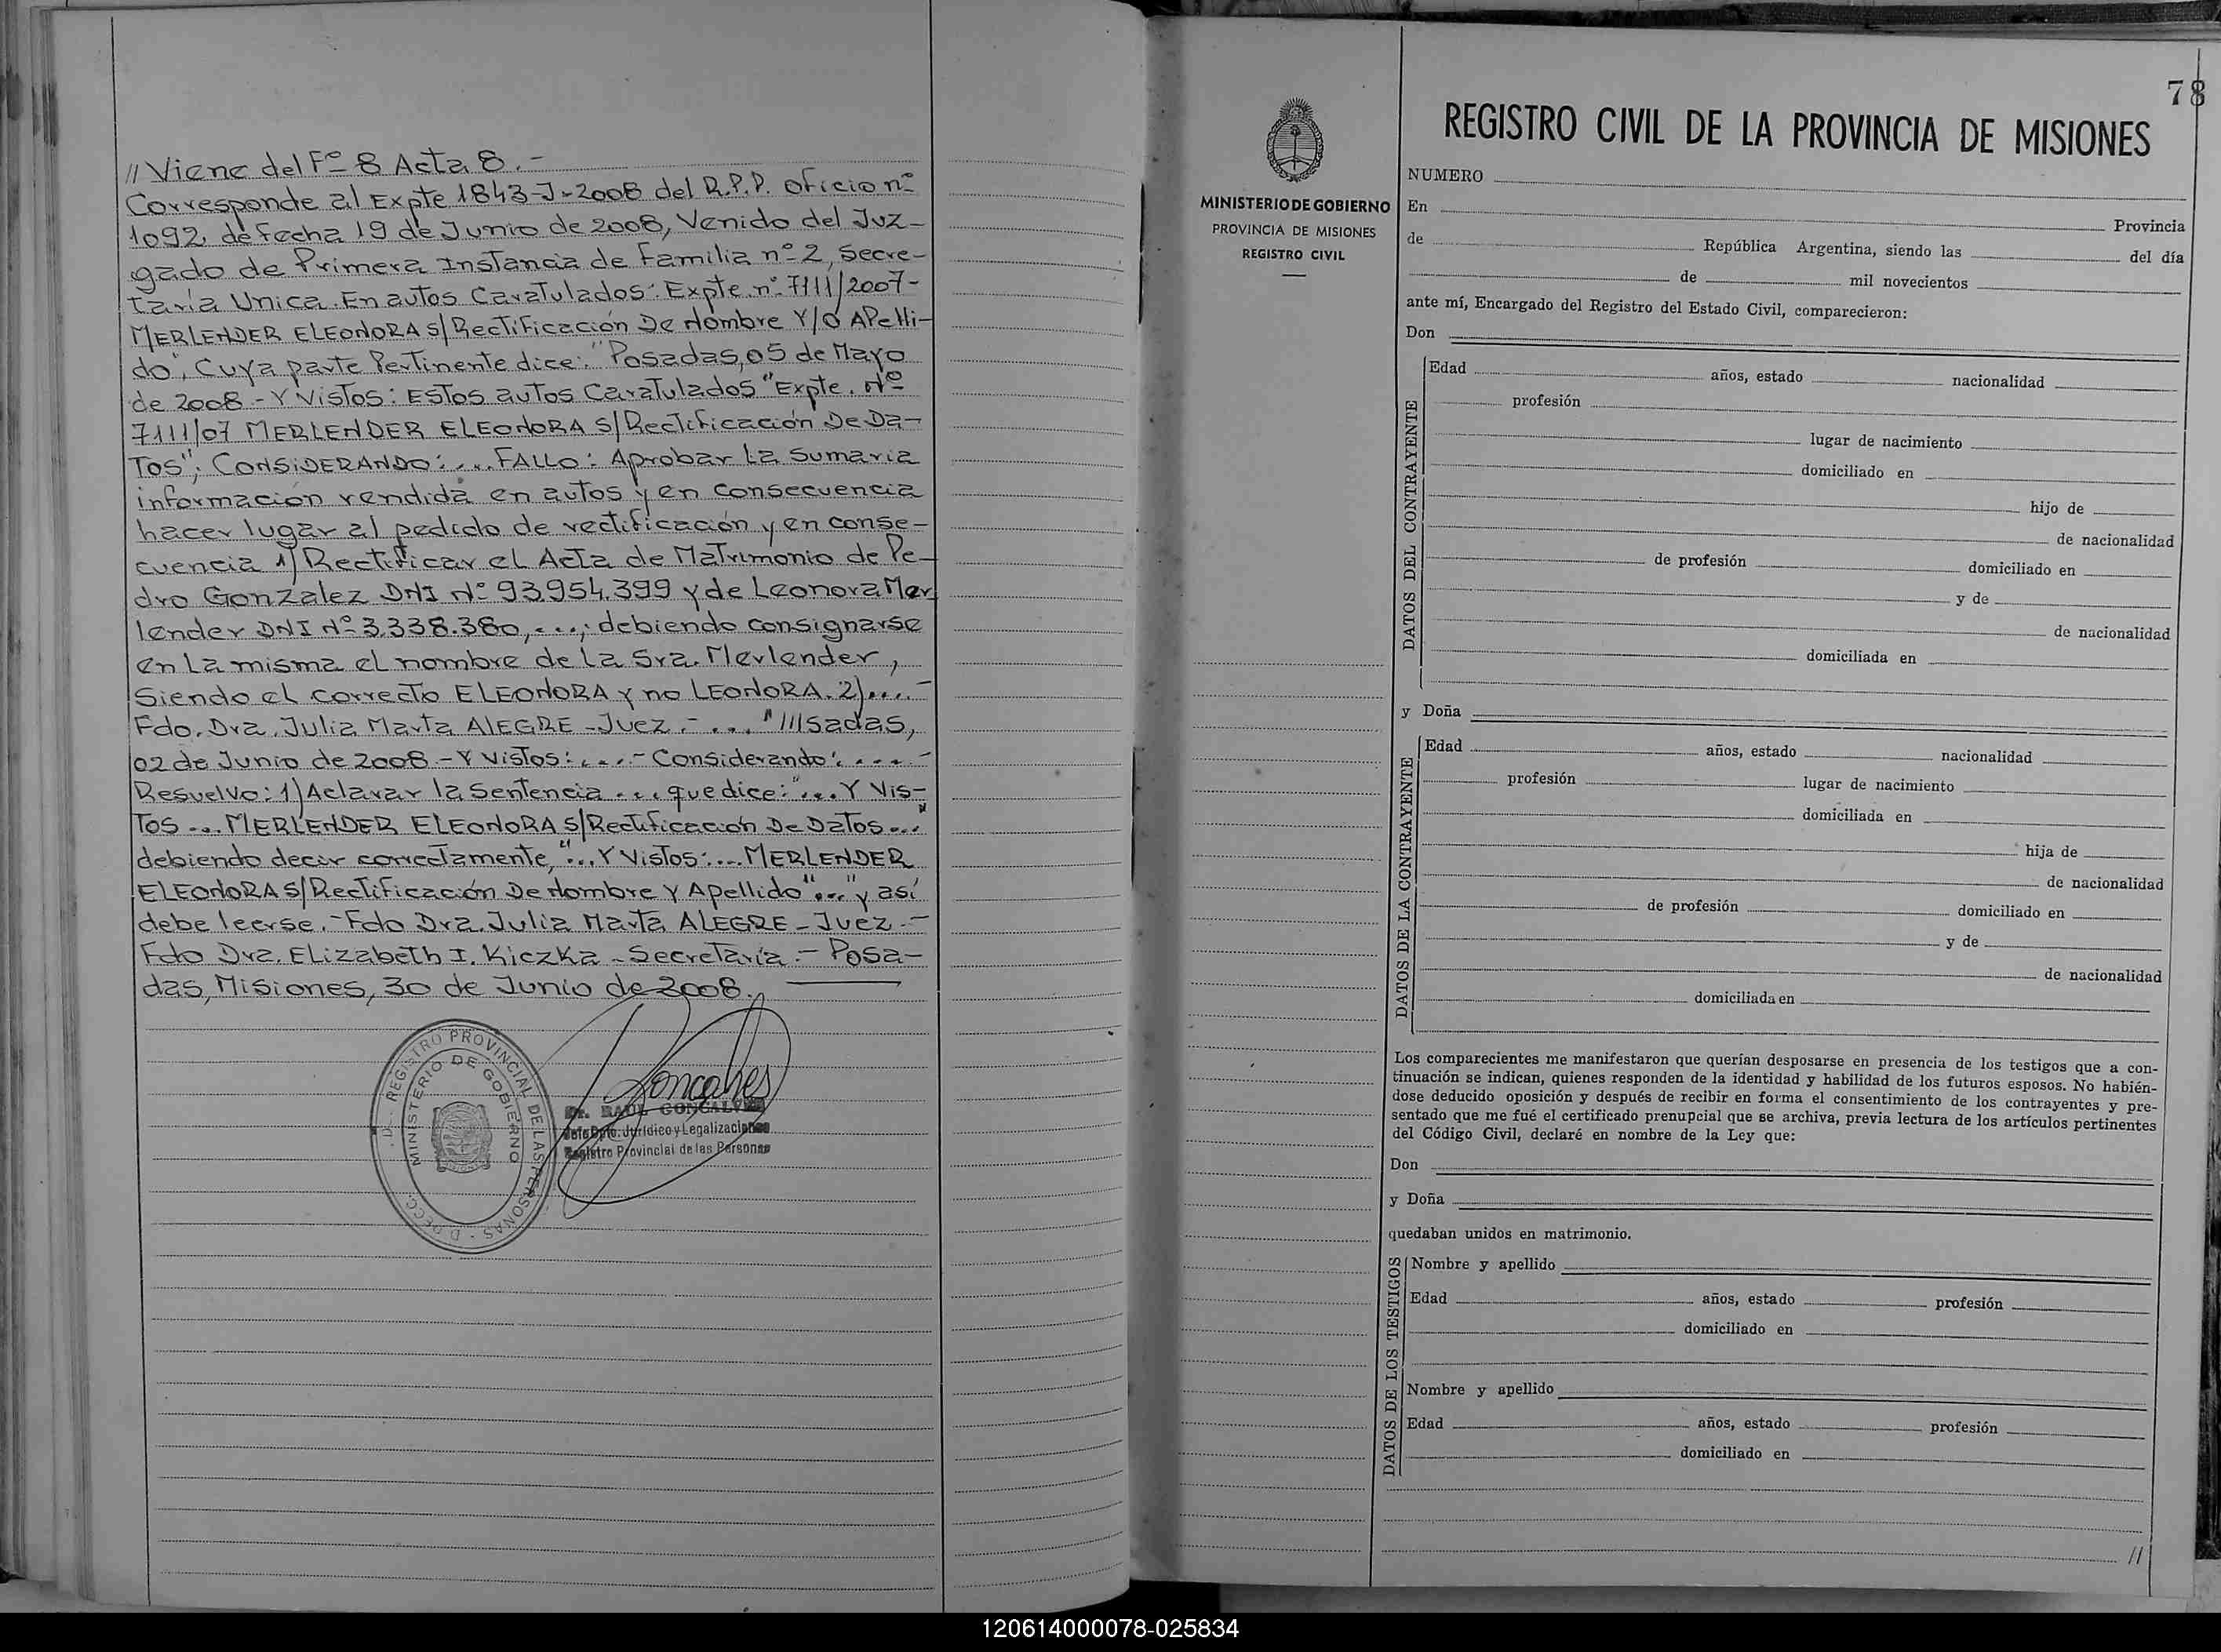 // Viene del Fº 8 Acta 8.-
Corresponde al Expte 1843-J-2008 del R.P.P. oficio nº
1092, de fecha 19 de Junio de 2008, Venido del Juz-
gado de Primera Instancia de Familia nº 2, Secre-
taría Unica. En autos Caratulados: Expte. nº 7111/2007-
MERLENDER ELEONORA S/Rectificación De Nombre Y/O APelli-
do", Cuya parte Pertinente dice: "Posadas, 05 de Mayo
de 2008.- Y Vistos: Estos autos Caratulados "Expte. Nº
7111/07 MERLENDER ELEONORA S/Rectificación De Da-
Tos"; CONSIDERANDO: ... FALLO: Aprobar La Sumaria
información rendida en autos y en consecuencia
hacer lugar al pedido de rectificación y en conse-
cuencia 1) Rectificar el Acta de Matrimonio de Pe-
dro Gonzalez DNI Nº 93.954.399 y de Leonora Mer
lender DNI Nº 3.338.380, ...; debiendo consignarse
en La misma el nombre de La Sra. Merlender,
Siendo el correcto ELEONORA y no LEONORA. 2)....-
Fdo. Dra. Julia Marta ALEGRE - Juez.- ... "///sadas,
02 de Junio de 2008.- Y Vistos: ....- Considerando: ....-
Resuelvo: 1) Aclarar la Sentencia ... que dice: "... Y Vis-
Tos ... MERLENDER ELEONORA S/Rectificación De Datos..."
debiendo decir correctamente, "... Y Vistos: ... MERLENDER
ELEONORA S/Rectificación De Nombre Y Apellido"..." y así
debe leerse.- Fdo Dra. Julia Marta ALEGRE - Juez.-
Fdo Dra. Elizabeth I. Kiczka - Secretaría.- Posa-
das, Misiones, 30 de Junio de 2008.
REGISTRO PROVINCIAL DE LAS PERSONAS
MINISTERIO DE GOBIERNO
Goncalves
Dr. RAUL GONCALVES
Jefe Dpto. Jurídico y Legalizaciones
Registro Provincial de las Personas
78
REGISTRO CIVIL DE LA PROVINCIA DE MISIONES
MINISTERIO DE GOBIERNO
PROVINCIA DE MISIONES
REGISTRO CIVIL
NUMERO
En Provincia
de República Argentina, siendo las del día
de mil novecientos
ante mí, Encargado del Registro del Estado Civil, comparecieron:
Don
DATOS DEL CONTRAYENTE
Edad años, estado nacionalidad
profesión
lugar de nacimiento
domiciliado en
hijo de
de nacionalidad
de profesión domiciliado en
y de
de nacionalidad
domiciliada en
y Doña
DATOS DE LA CONTRAYENTE
Edad años, estado nacionalidad
profesión lugar de nacimiento
domiciliada en
hija de
de nacionalidad
de profesión domiciliado en
y de
de nacionalidad
domiciliada en
Los comparecientes me manifestaron que querían desposarse en presencia de los testigos que a con-
tinuación se indican, quienes responden de la identidad y habilidad de los futuros esposos. No habién-
dose deducido oposición y después de recibir en forma el consentimiento de los contrayentes y pre-
sentado que me fué el certificado prenupcial que se archiva, previa lectura de los artículos pertinentes
del Código Civil, declaré en nombre de la Ley que:
Don
y Doña
quedaban unidos en matrimonio.
DATOS DE LOS TESTIGOS
Nombre y apellido
Edad años, estado profesión
domiciliado en
Nombre y apellido
Edad años, estado profesión
domiciliado en
//
120614000078-025834